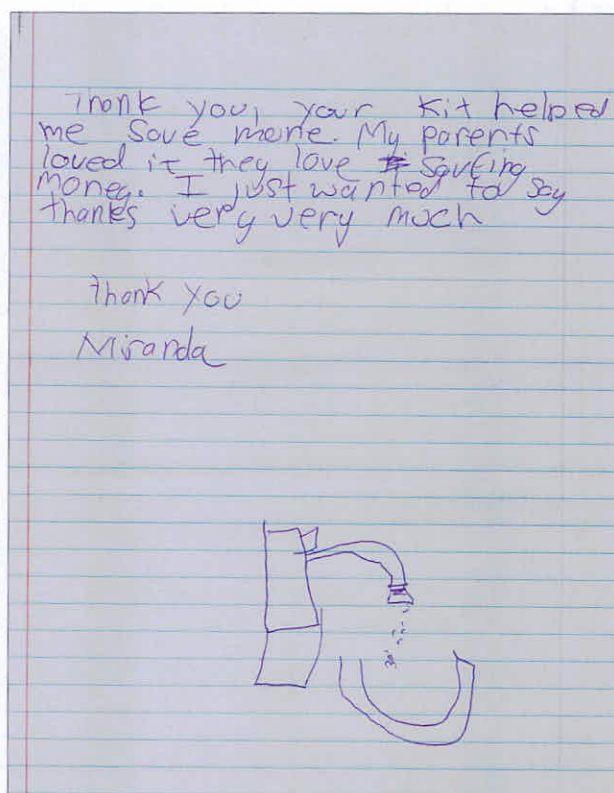 Thank you, your kit helped
me Save mone. My parents
loved it they love saveing
money. I just wanted to say
thanks very very much
thank you
Miranda